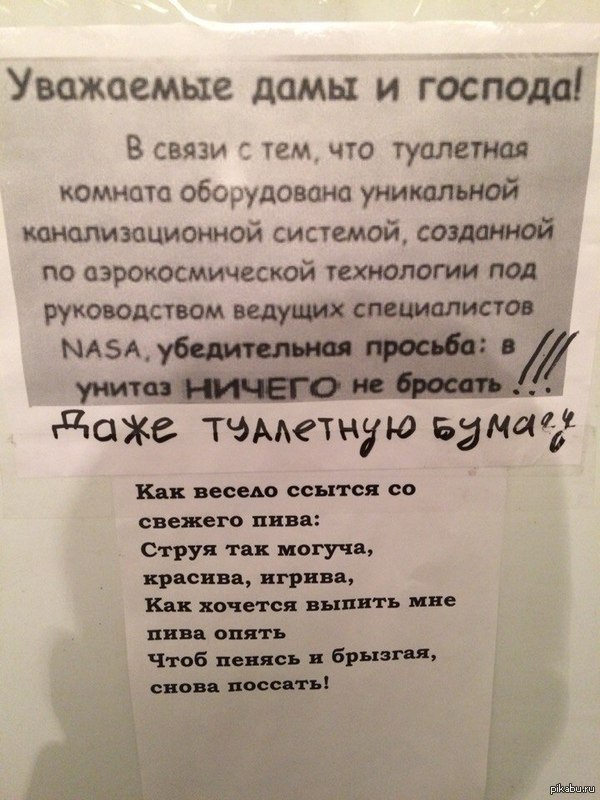 Уважаемые дамы и господа!
В связи с тем, что туалетная
комната оборудована уникальной
канализационной системой, созданной
по аэрокосмической технологии под
руководством ведущих специалистов
NASA, убедительная просьба: в
унитаз НИЧЕГО не бросать !!!
Даже туалетную бумагу
Как весело ссытся со
свежего пива:
Струя так могуча,
красива, игрива,
Как хочется выпить мне
пива опять
Чтоб пенясь и брызгая,
снова поссать!
pikabu.ru